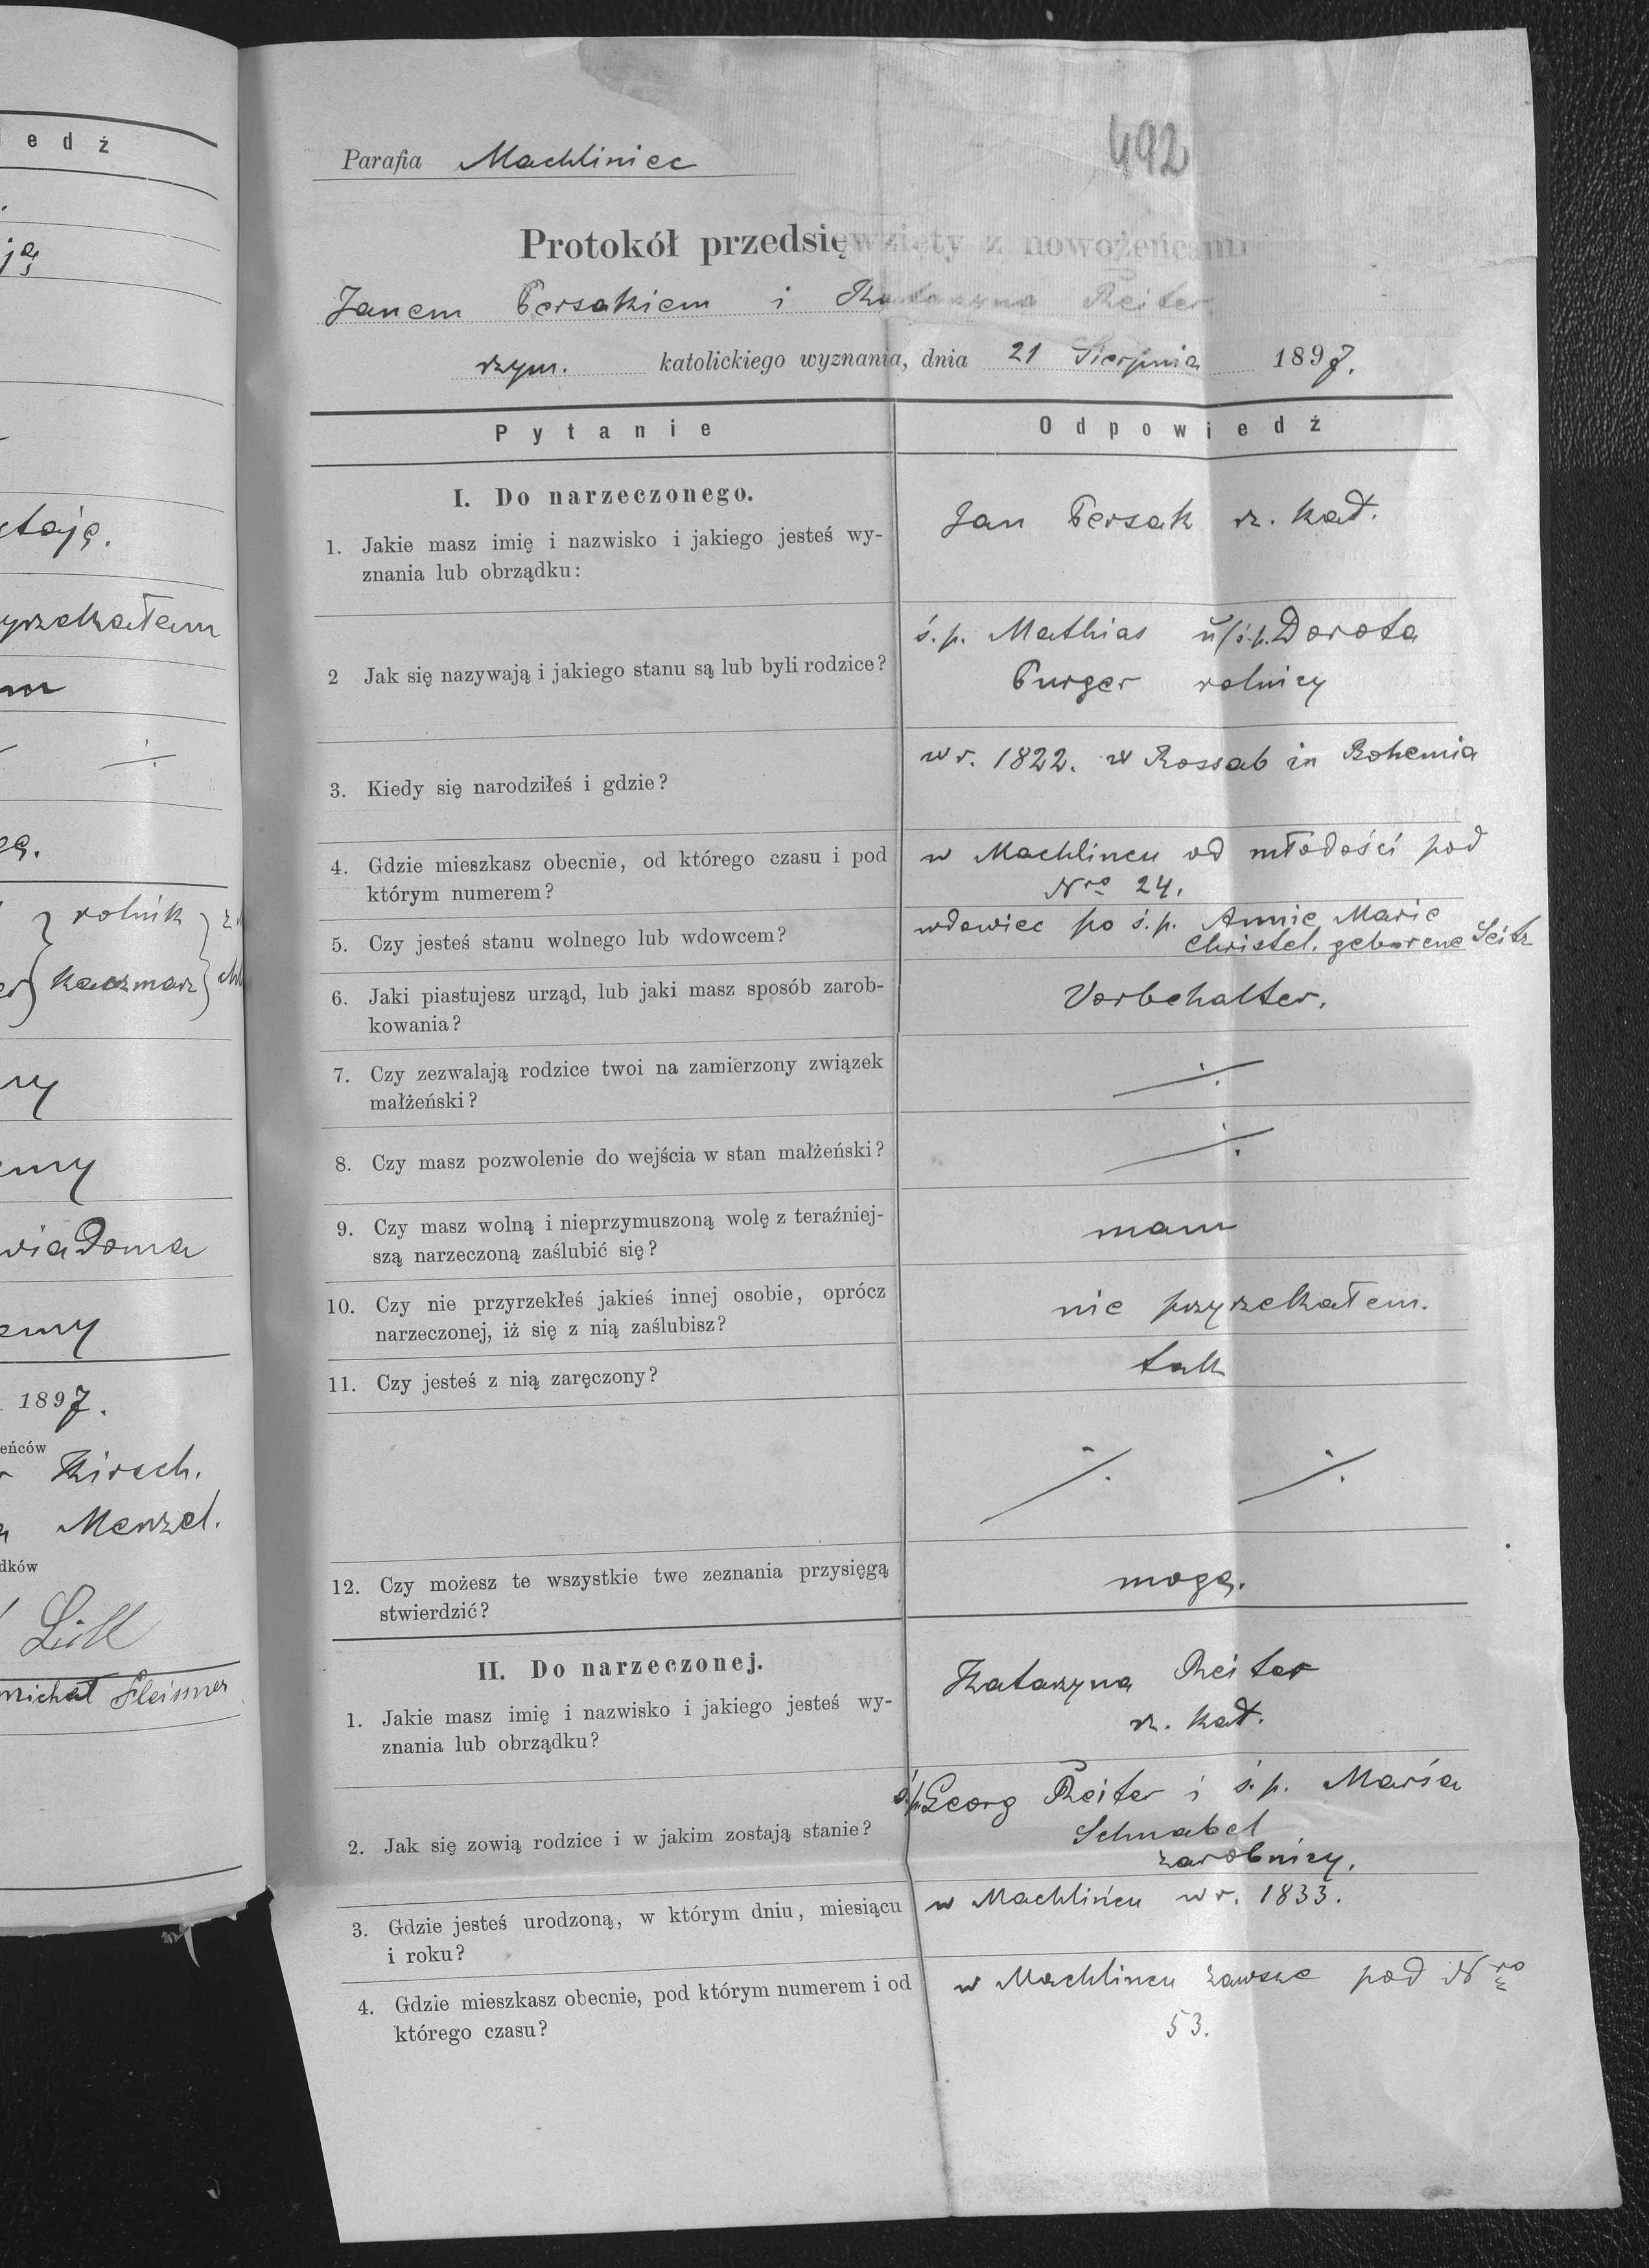 iedź
ją
ctają.
yrzekałem
gę.
rolnik
kaczmarz
ny
emy
wiadoma
emy
1897.
eńców
Kirsch.
Menzel.
dków
Lill
michał Fleissner
492
Parafia Machliniec
Protokół przedsięwzięty z nowożeńcami
Janem Persakiem i Katarzyna Reiter
rzym. katolickiego wyznania, dnia 21 Sierpnia 1897.
Pytanie Odpowiedź
I. Do narzeczonego.
1. Jakie masz imię i nazwisko i jakiego jesteś wy-
znania lub obrządku:
Jan Persak rz. kat.
2 Jak się nazywają i jakiego stanu są lub byli rodzice?
ś. p. Mathias ś.p. Dorota
Purger rolnicy
3. Kiedy się narodziłeś i gdzie?
w r. 1822. w Rossab in Bohemia
4. Gdzie mieszkasz obecnie, od którego czasu i pod
którym numerem?
w Machlincu od młodości pod
Nro 24.
5. Czy jesteś stanu wolnego lub wdowcem?
wdowiec po ś. p. Annie Marie
Christel. geborene Seitz
6. Jaki piastujesz urząd, lub jaki masz sposób zarob-
kowania?
Vorbehalter.
7. Czy zezwalają rodzice twoi na zamierzony związek
małżeński?
÷
8. Czy masz pozwolenie do wejścia w stan małżeński?
÷
9. Czy masz wolną i nieprzymuszoną wolę z teraźniej-
szą narzeczoną zaślubić się?
mam
10. Czy nie przyrzekłeś jakieś innej osobie, oprócz
narzeczonej, iż się z nią zaślubisz?
nie przyrzekałem.
11. Czy jesteś z nią zaręczony?
tak
÷ ÷
12. Czy możesz te wszystkie twe zeznania przysięgą
stwierdzić?
mogę.
II. Do narzeczonej.
1. Jakie masz imię i nazwisko i jakiego jesteś wy-
znania lub obrządku?
Katarzyna Reiter
rz. kat.
2. Jak się zowią rodzice i w jakim zostają stanie?
ś.p. Georg Reiter i ś. p. Maria
Schnabel
zarobnicy.
3. Gdzie jesteś urodzoną, w którym dniu, miesiącu
i roku?
w Machlińcu w r. 1833.
4. Gdzie mieszkasz obecnie, pod którym numerem i od
którego czasu?
w Machlincu zawsze pod Nro
53.